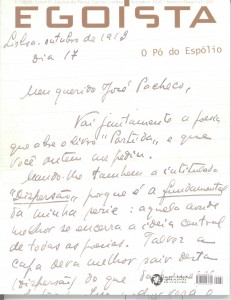 EGOÍSTA
Lisboa, outubro de 1913
O Pó do Espólio
Dia 17
Meu querido José Pacheco,
Vai juntamente a poesia
que abre o livro "Partida" e que
Você ontem me pediu.
Mando-lhe tambem a intitulada
"Dispersão" porque é a fundamental
da minha serie: aquela aonde
melhor se encerra a ideia central
de todas as poesias. Talvez a
capa deva melhor sair desta
"Dispersão" do que da